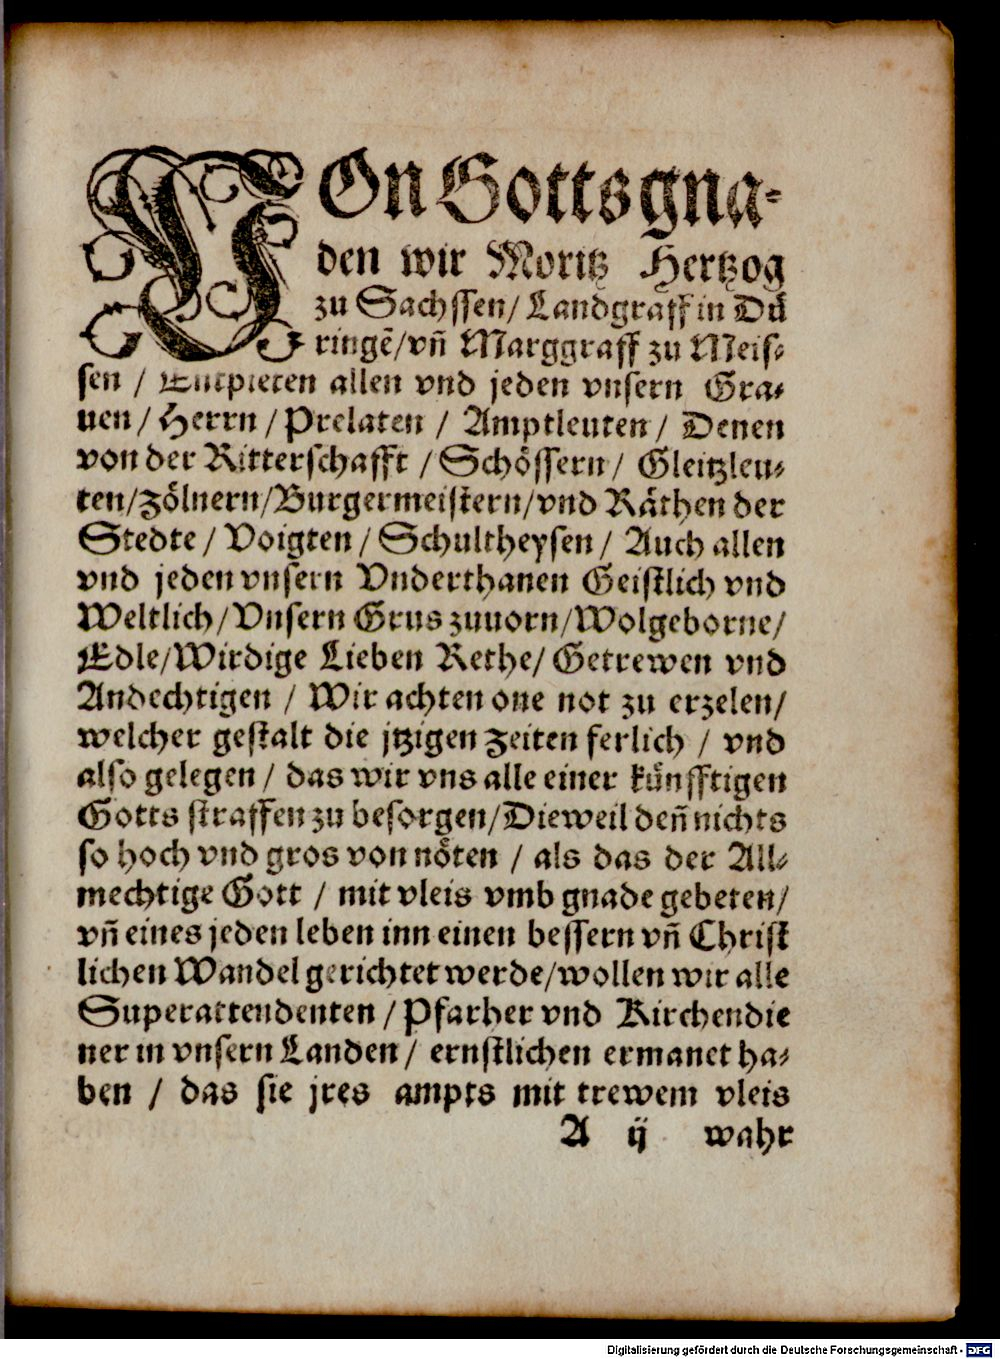 VOn Gottsgna⸗
den wir Moritz Hertzog
zu Sachssen/ Landgraff in Dü
ringẽ/vñ Marggraff zu Meis⸗
sen / Entpieten allen vnd jeden vnsern Gra⸗
uen/ Herrn/ Prelaten / Amptleuten/ Denen
von der Ritterschafft /Schössern/ Gleitzleu⸗
ten/zölnern/Burgermeistern/vnd Räthen der
Stedte/ Voigten/ Schultheysen/ Auch allen
vnd jeden vnsern Vnderthanen Geistlich vnd
Weltlich/Vnsern Grus zuuorn/Wolgeborne/
Edle/Wirdige Lieben Rethe/ Getrewen vnd
Andechtigen / Wir achten one not zu erzelen/
welcher gestalt die jtzigen zeiten ferlich / vnd
also gelegen/ das wir vns alle einer künfftigen
Gotts straffen zu besorgen/Dieweil deñ nichts
so hoch vnd gros von nöten / als das der All⸗
mechtige Gott / mit vleis vmb gnade gebeten/
vñ eines jeden leben inn einen bessern vñ Christ
lichen Wandel gerichtet werde/wollen wir alle
Superattendenten /Pfarher vnd Kirchendie
ner in vnsern Landen/ ernstlichen ermanet ha⸗
ben / das sie jres ampts mit trewem vleis
A ij wahr
Digitalisierung gefördert durch die Deutsche Forschungsgemeinschaft - DFG